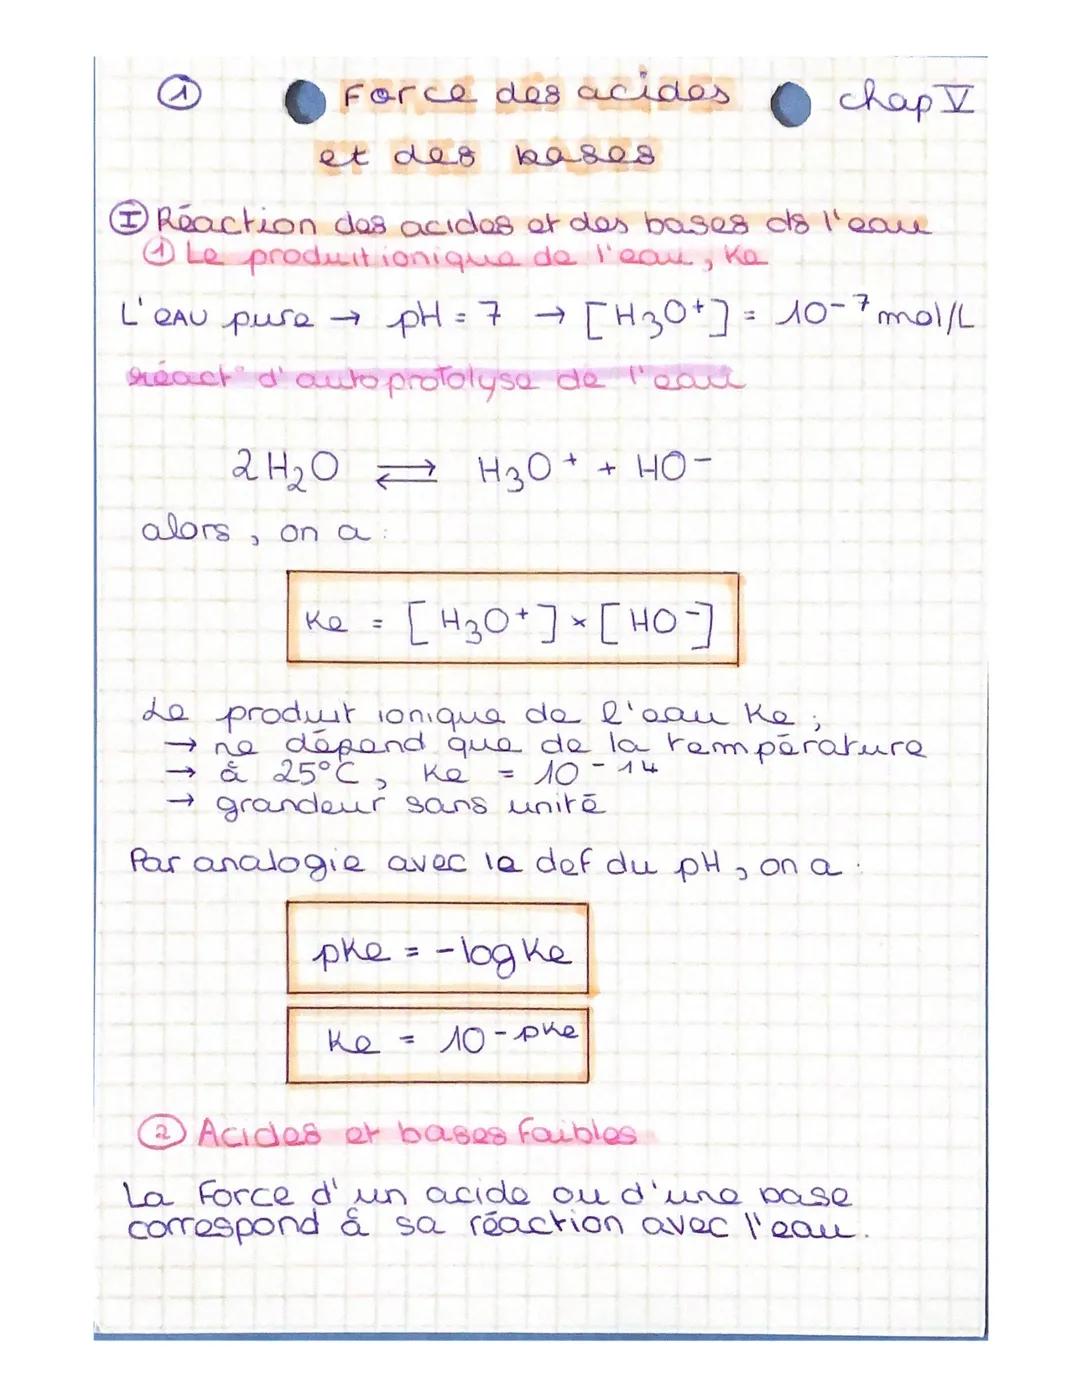 ① Force des acides chap V
et des bases
Ⓘ Réaction des acides et des bases ds l'eau
① Le produit ionique de l'eau, Ke
L'eau pure → pH = 7 → [H₃O⁺] = 10⁻⁷ mol/L
réact° d'autoprotolyse de l'eau
2H₂O ⇌ H₃O⁺ + HO⁻
alors, on a :
Ke = [H₃O⁺] × [HO⁻]
Le produit ionique de l'eau Ke ;
→ ne dépend que de la température
→ à 25°C, Ke = 10⁻¹⁴
→ grandeur sans unité
Par analogie avec la def du pH, on a :
pKe = -log Ke
Ke = 10^-pKe
② Acides et bases faibles
La force d'un acide ou d'une base
correspond à sa réaction avec l'eau.